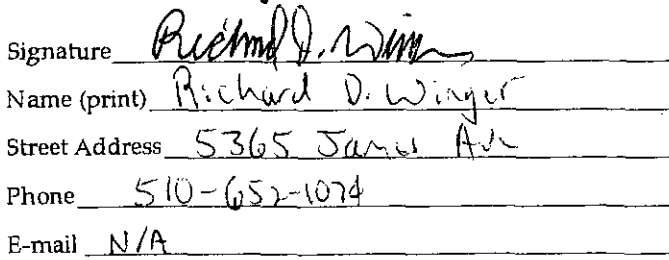 Signature Richard D. Winger
Name (print) Richard D. Winger
Street Address 5365 James Ave
Phone 510-652-1074
E-mail N/A